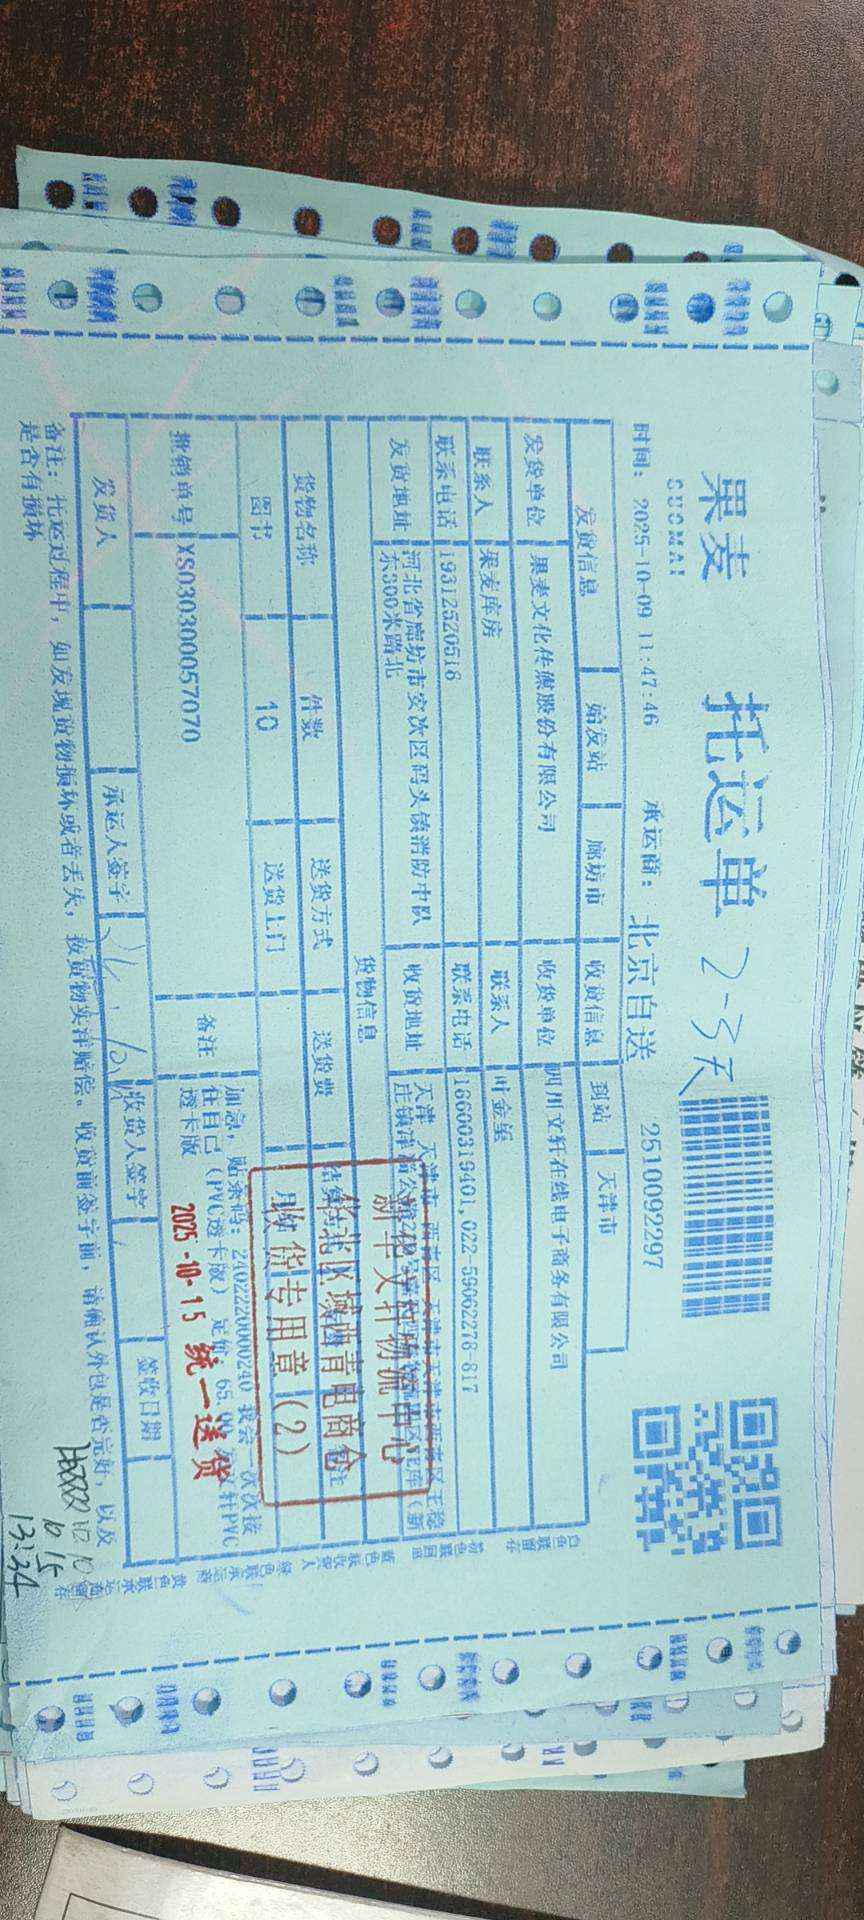 果麦
GUOMAI
托运单 2-3天
时间: 2025-10-09 11:47:46 承运商: 北京自送 2510092297
发货信息 始发站 廊坊市 收货信息 到站 天津市
发货单位 果麦文化传媒股份有限公司 收货单位 四川文轩在线电子商务有限公司
联系人 果麦库房 联系人 叶金玺
联系电话 19312520518 联系电话 18600319401,022-59062278-817
发货地址 河北省廊坊市安次区码头镇消防中队东300米路北 收货地址 天津 天津市 西青区
货物信息
货物名称 件数 送货方式 送货费
图书 10 送货上门
批销单号 XS030300057070 备注 加急, 贴条码: 2402220000240 我会一次次接住自己 (PVC透卡版) 定价: 65.00 PVC透卡版
新华文轩物流中心
华北区域西青电商仓
收货专用章(2)
2025-10-15 统一送货
发货人 承运人签字 收货人签字 签收日期
备注: 托运过程中, 如发现货物损坏或者丢失, 按货物实洋赔偿。收货前签字前, 请确认外包是否完好, 以及是否有损坏
白色联留存
粉色联回返
蓝色联收货人
绿色联承运商
黄色联承运商留存
10/15
13:34